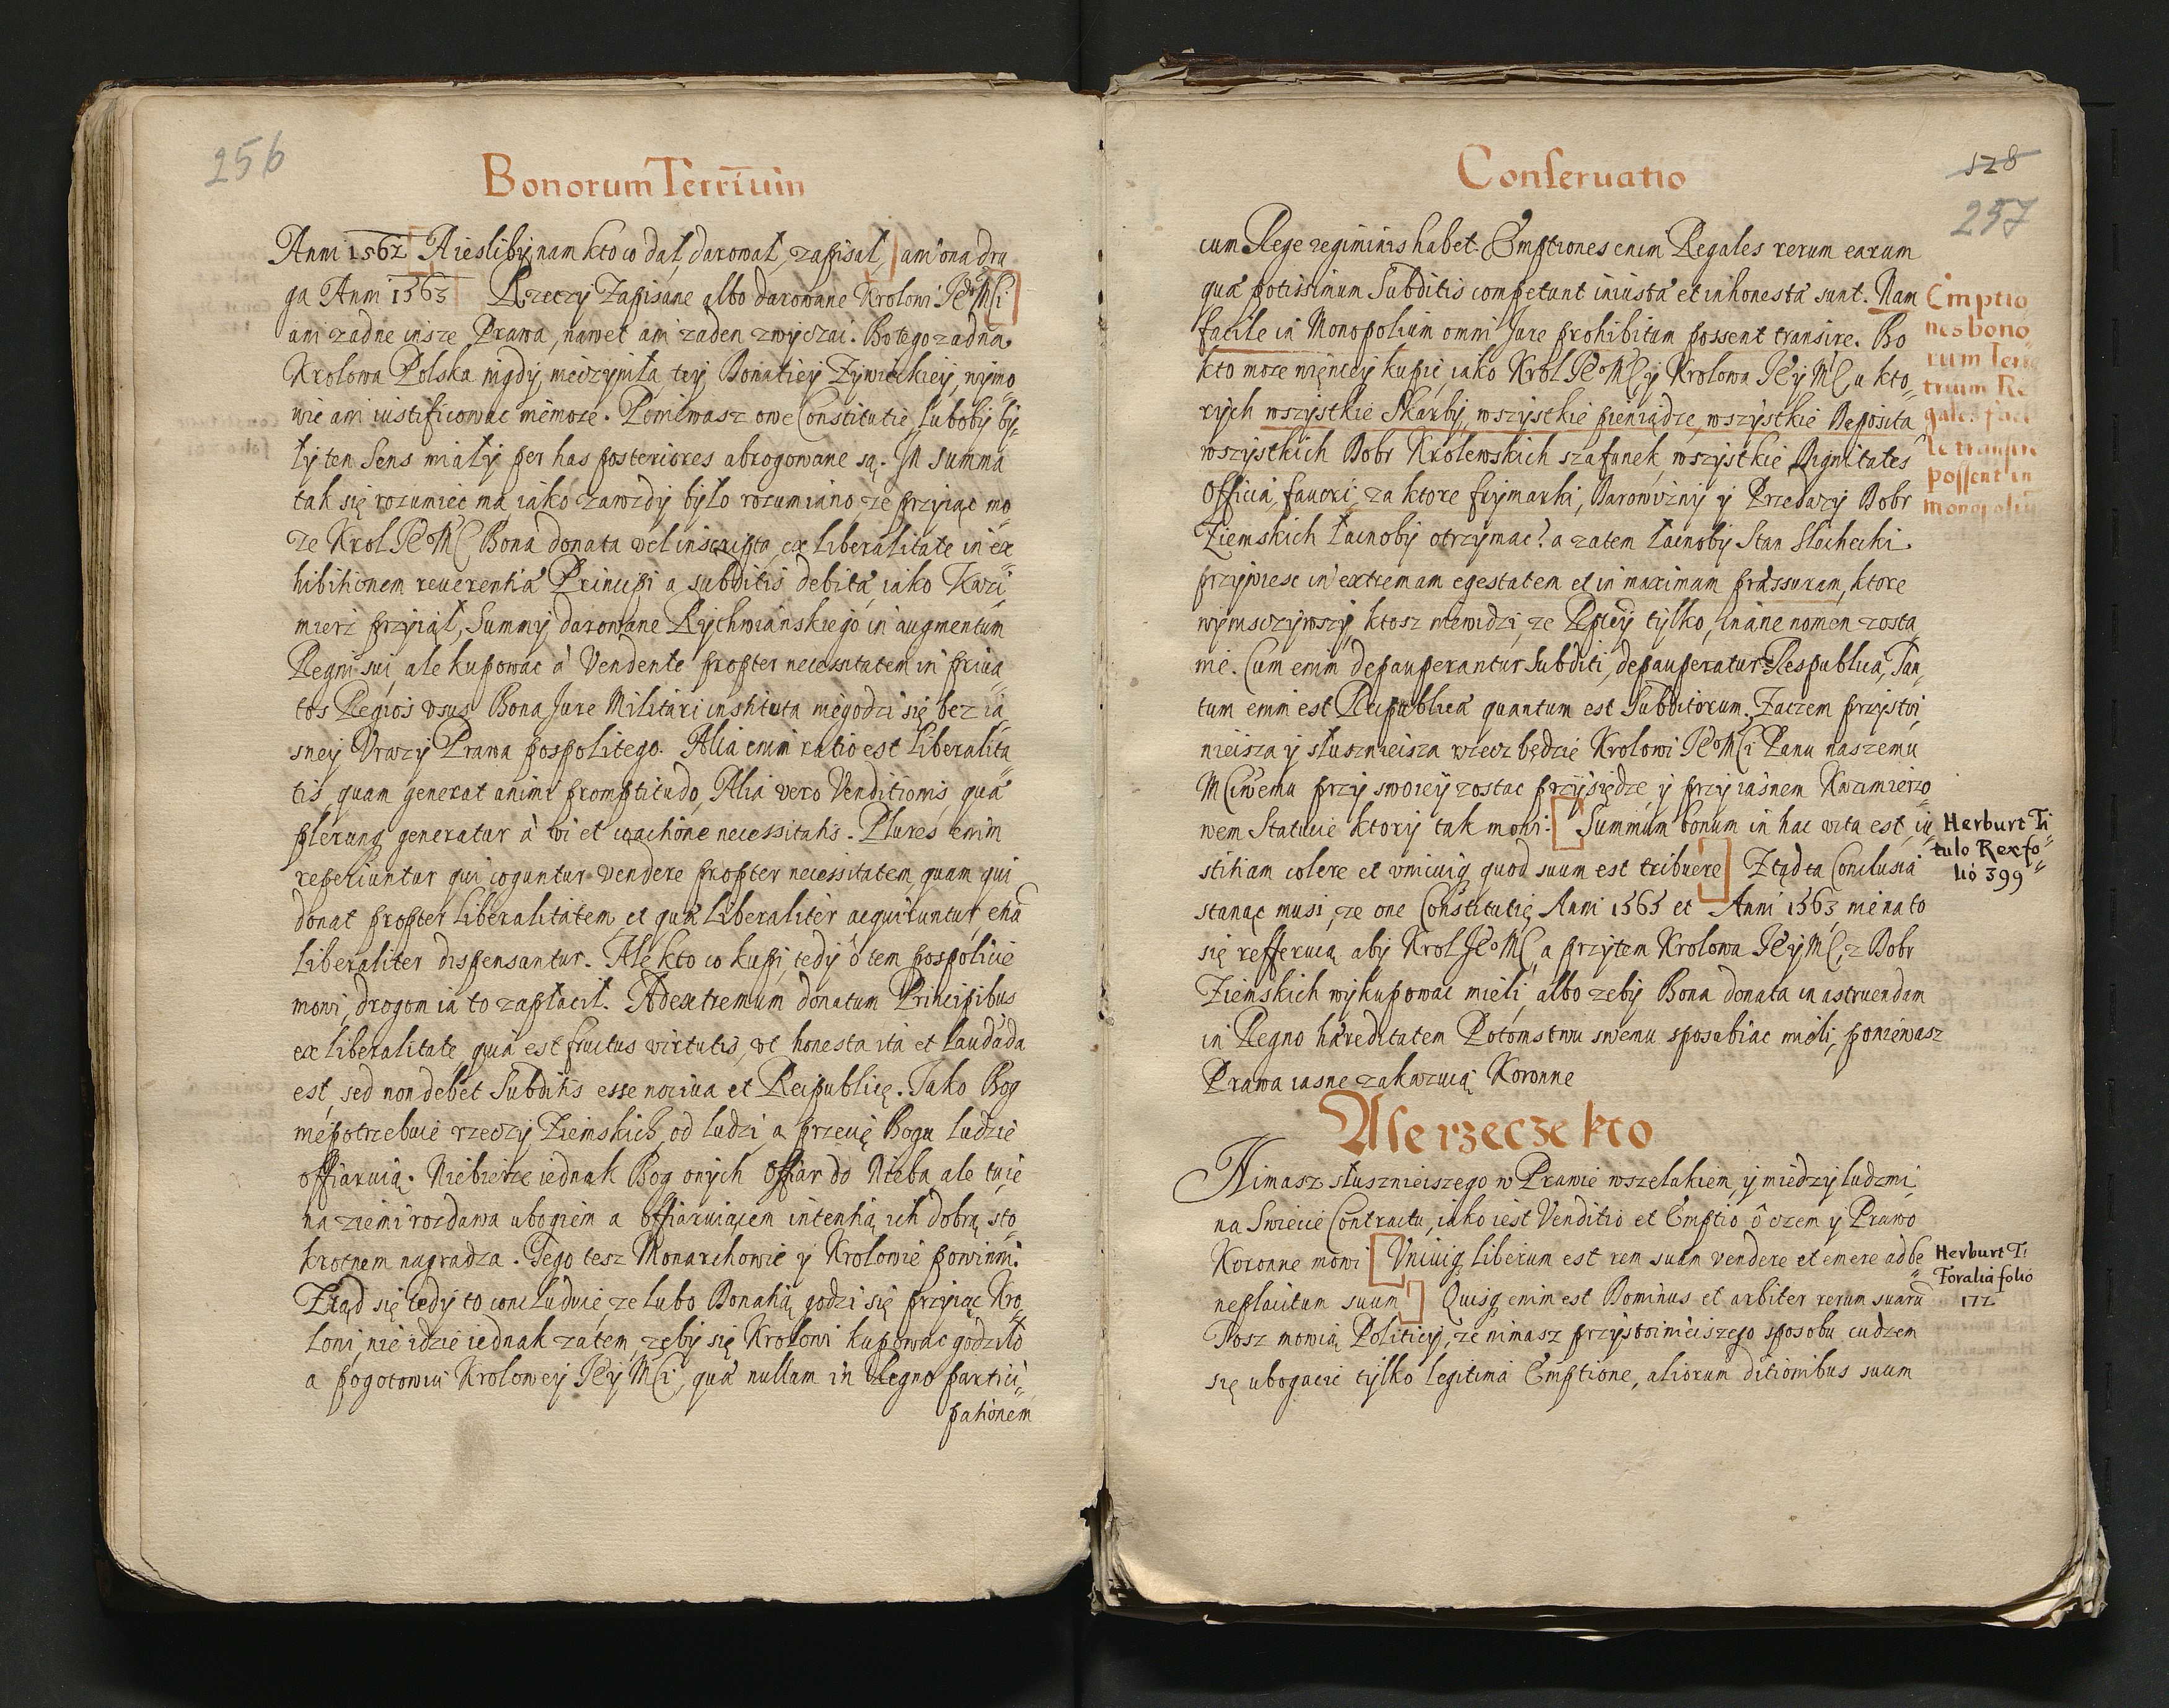 256
Bonorum Terrium
Anni 1562 Aiesliby nam kto co dał, darował, zapisał, ani ona dru
ga Anni 1563 Rzeczy Zapisane albo darowane Krolowi JeoMći
ani zadne insze Prawa, nawet ani zaden zwyczai. Bo tego zadna
Krolowa Polska nigdy nieczyniła, tey Donatiey Zywieckiey, wymo
wic ani iustificowac niemoze. Poniewasz owe Constitutie, luboby by„
ły ten Sens miały per has posteriores abrogowane są. In summa
tak się rozumiec ma iako zawzdy było rozumiano, ze przyiąc mo„
ze Krol JeoMć Bona donata vel inscripta ex liberalitate in ex„
hibitionem reuerentiæ Principi a subditis debitæ, iako Kazi„
mierz przyiął, Summy darowane Rychwiańskiego in augmentum
Regni sui, ale kupowac à Vendente propter necessitatem in priua„
tos Regios vsus Bona Jure Militari instituta niegodzi się bez ia„
sney Vrazy Prawa pospolitego. Alia enim ratio est liberalita„
tis, quam generat animi promptitudo, Alia vero Venditionis, quæ
plerunq generatur à vi et coactione necessitatis. Plures enim
reperiuntur qui coguntur vendere propter necessitatem, quam qui
donat propter liberalitatem, et quæ liberaliter acquiruntur, etiā
liberaliter dispensantur. Ale kto co kupi, tedy o tem pospolicie
mowi, drogom ia to zapłacił. Ad extremum donatum Principibus
ex liberalitate, quæ est fructus virtutis, vt honesta ita et laudāda
est, sed non debet Subditis esse nociua et Reipublicę. Jako Bog
niepotrzebuie rzeczy Ziemskich od ludzi a przecię Bogu ludzie
offiaruią. Niebierze iednak Bog onych Offiar do Nieba, ale tuie
na ziemi rozdawa ubogiem a offiaruiącem intentią ich dobrą sto„
krotnem nagradza. Tego tesz Monarchowie y Krolowie powinni.
Ztąd się tedy to concluduie, ze lubo Donatią godzi się przyiąc Kro„
lowi, nie idzie iednak zatem, zeby się Krolowi kupowac godziło
a pogotowiu Krolowey JeyMći, quæ nullam in Regno partici„
pationem
Conseruatio
128
257
cum Rege regiminis habet. Emptiones enim Regales rerum earum
quæ potissimum Subditis competunt iniustæ et inhonestæ sunt. Nam
facile in Monopolium omni Jure prohibitum possent transire. Bo
kto moze więncey kupic, iako Krol JeoMć y Krolowa JeyMć, u kto„
rych wszystkie Skarby, wszystkie pieniądze, wszystkie Deposita
wszystkich Dobr Krolewskich szafunek, wszystkie Dignitates
Officia, fauori, za ktore frymarki, Darowizny y Przedazy Dobr
Ziemskich łacnoby otrzymac? a zatem łacnoby Stan Slachecki
przywiesc in extremam egestatem et in maximam præssuram, ktore
wymsczywszy, ktosz niewidzi, ze Rptcy tylko, inane nomen zosta„
nie. Cum enim depauperantur Subditi, depauperatur Respublica, Tan„
tum enim est Reipublicæ quantum est Subditorum. Zaczem przystoi„
nieisza y słusznieisza rzecz będzie Krolowi JeoMći Panu naszemu
Mćiwemu przy swoiey zostac przysiędze y przy iasnem Kazimierzo„
wem Statucie ktory tak mowi. Summum bonum in hac vita est, iu„
stitiam colere et vnicuiq quod suum est tribuere Ztąd ta Conclusia
stanąc musi, ze one Constitutię Anni 1565 et Anni 1563 nie na to
się refferuią aby Krol JeoMć, a przytem Krolowa JeyMć, z Dobr
Ziemskich wykupowac mieli albo zeby Bona donata in astruendam
in Regno hæreditatem Potomstwu swemu sposabiac mieli, poniewasz
Prawa iasne zakazuią Koronne
Ale rzecze kto
Nimasz słusznieiszego w Prawie wszelakiem, y miedzy ludzmi
na Swiecie Contractu, iako iest Venditio et Emptio, o czem y Prawo
Koronne mowi Vnicuiq liberum est rem suam vendere et emere ad be„
neplacitum suum Quisq enim est Dominus et arbiter rerum suarū
Tosz mowią Politicy, ze nimasz przystoinieiszego sposobu cudzem
się ubogacic tylko legitima Emptione, aliorum ditionibus suum
Emptio
nes bono„
rum Terre
trium Re
gales faci
le transire
possent in
monopoliū
Herburt Ti„
tulo Rex fo„
lio 399
Herburt Ti
Foralia folio
172